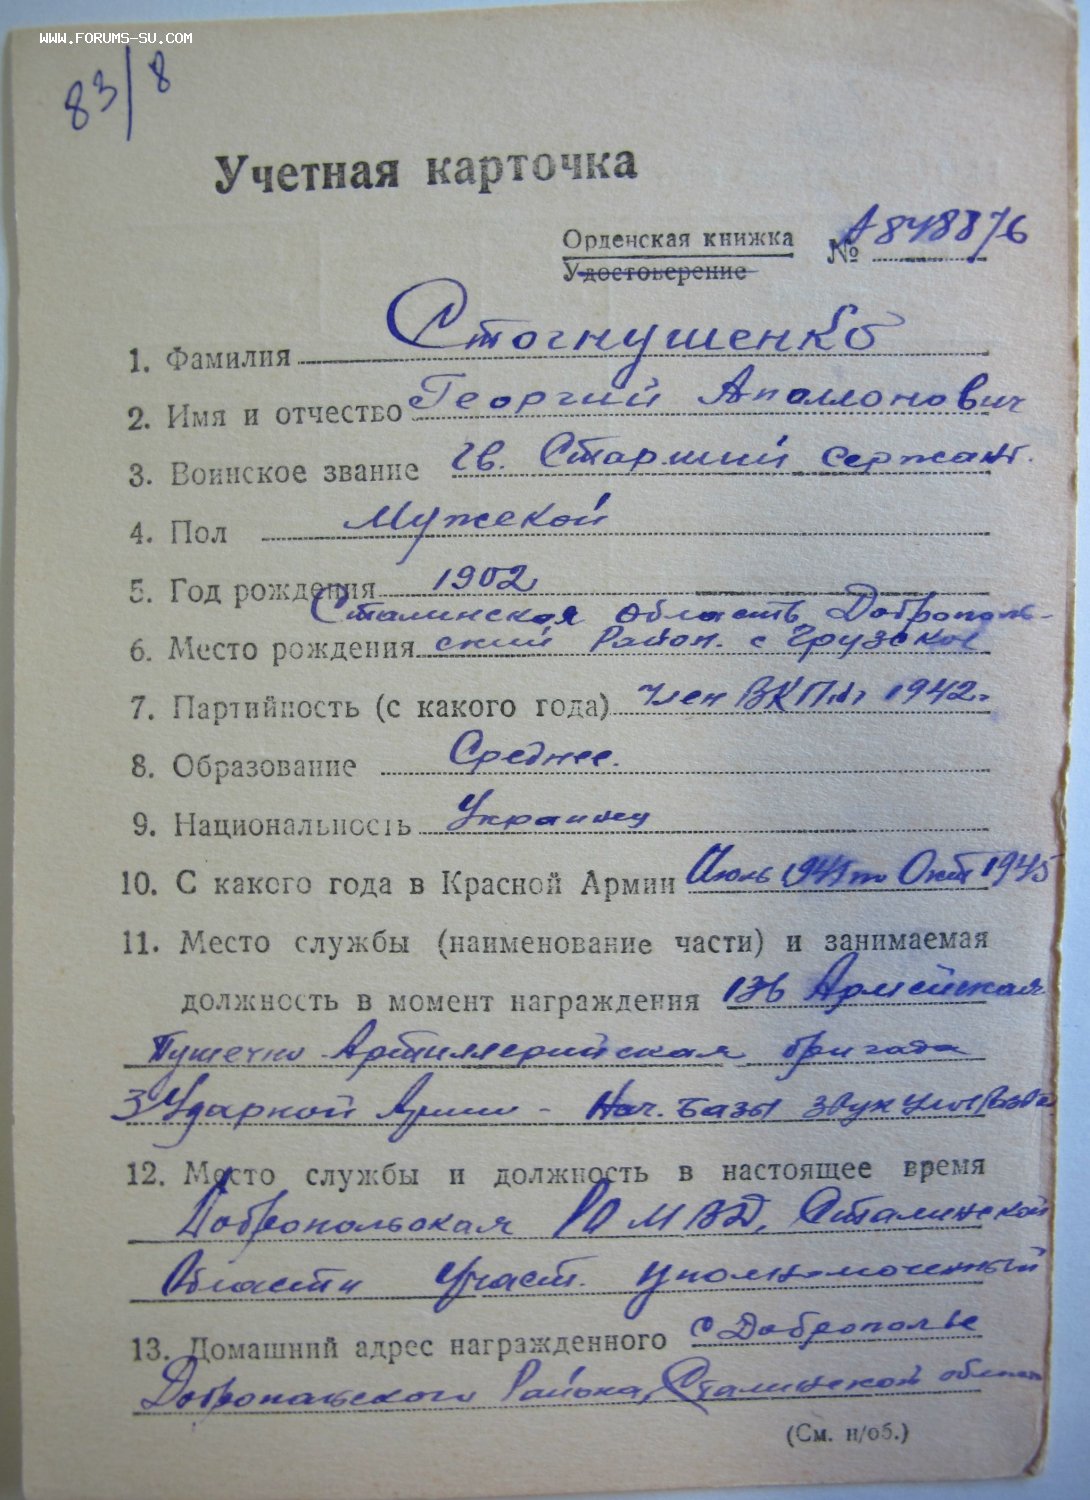 WWW.FORUMS-SU.COM
83/8
Учетная карточка
Орденская книжка № А 848876
Удостоверение
1. Фамилия Стогнушенко
2. Имя и отчество Георгий Аполлонович
3. Воинское звание гв. Старший сержант.
4. Пол Мужской
5. Год рождения 1902
Сталинская область Доброполь-
6. Место рождения ский Район. с Грузское
7. Партийность (с какого года) Член ВКП(б) 1942.
8. Образование Среднее.
9. Национальность Украинец
10. С какого года в Красной Армии Июль 1941 по Окт 1945
11. Место службы (наименование части) и занимаемая
должность в момент награждения 136 Армейская
Пушечно-Артиллерийская бригада
3 Ударной Армии - Нач. базы звук
12. Место службы и должность в настоящее время
Добропольская РО МВД, Сталинской
Области Участ. уполномоченный
13. Домашний адрес награжденного с Доброполье
Добропольского Района, Сталинской области
(См. н/об.)